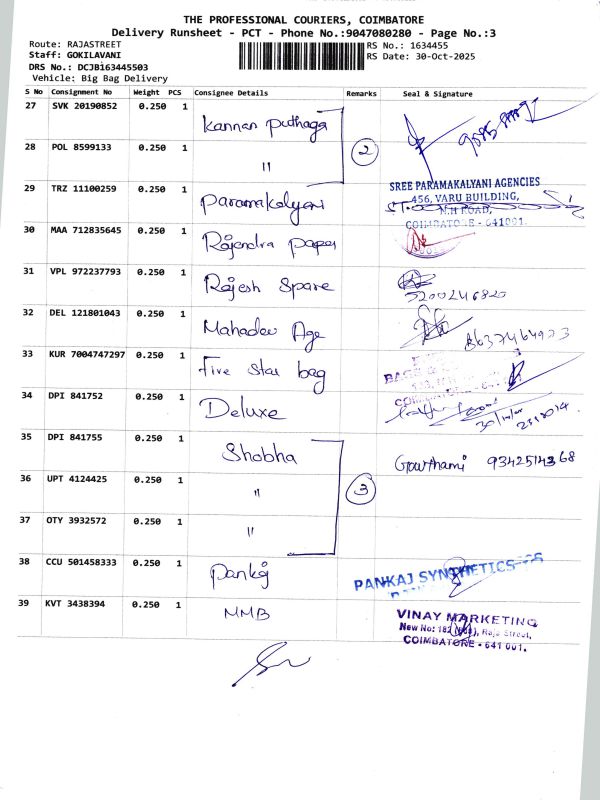 THE PROFESSIONAL COURIERS, COIMBATORE
Delivery Runsheet - PCT - Phone No.:9047080280 - Page No.:3
Route: RAJASTREET
RS No.: 1634455
Staff: GOKILAVANI
RS Date: 30-Oct-2025
DRS No.: DCJB163445503
Vehicle: Big Bag Delivery
S No Consignment No Weight PCS Consignee Details Remarks Seal & Signature
27 SVK 20190852 0.250 1 Kannan puthaga
28 POL 8599133 0.250 1 " 2
29 TRZ 11100259 0.250 1 Paramakalyani
SREE PARAMAKALYANI AGENCIES
456, VARU BUILDING,
N.H ROAD,
COIMBATORE - 641001.
30 MAA 712835645 0.250 1 Rajendra paper
31 VPL 972237793 0.250 1 Rajesh Spare
32 DEL 121801043 0.250 1 Mahadev Age 8637464923
33 KUR 7004747297 0.250 1 Five star bag
34 DPI 841752 0.250 1 Deluxe
35 DPI 841755 0.250 1 Shobha Gowthami 9342514368
36 UPT 4124425 0.250 1 " 3
37 OTY 3932572 0.250 1 "
38 CCU 501458333 0.250 1 Pankj PANKAJ SYNTHETICS
39 KVT 3438394 0.250 1 MMB
VINAY MARKETING
New No: 182, Raja Street,
COIMBATORE - 641 001.